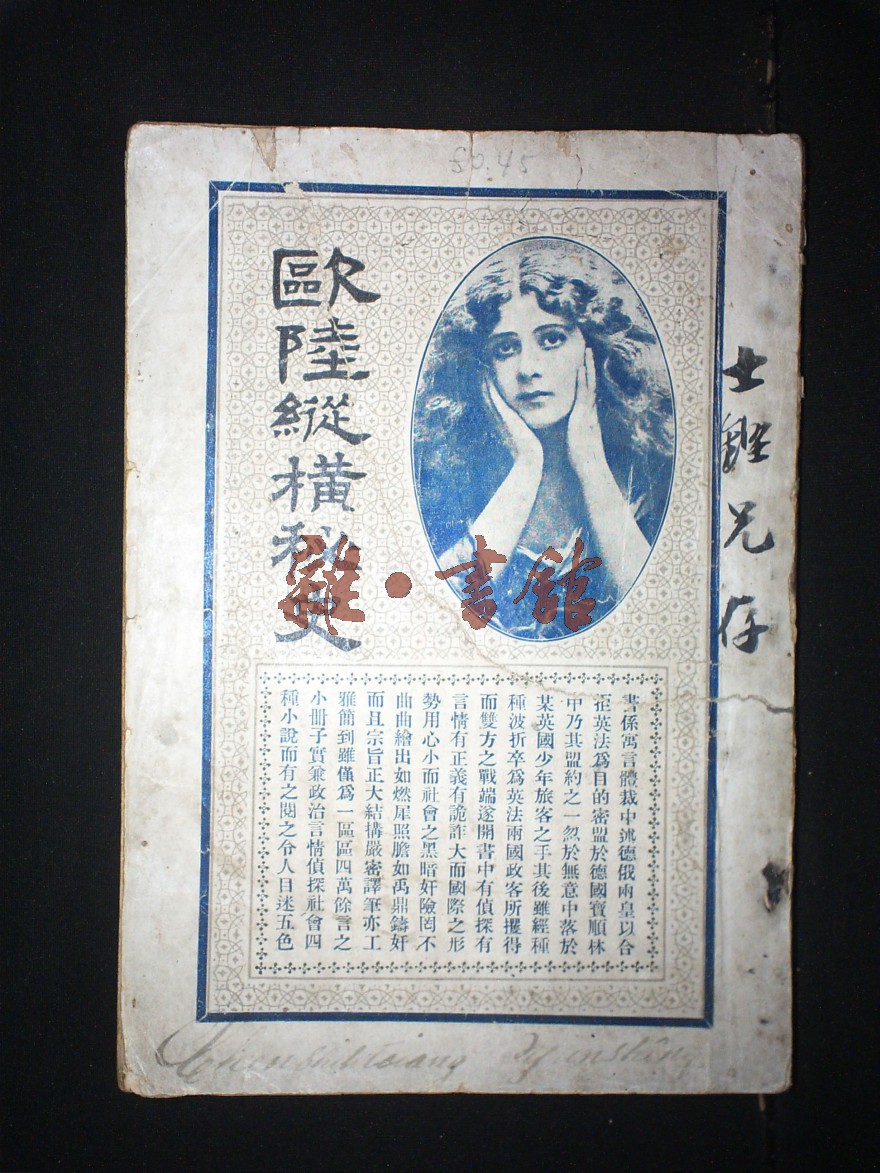 $0.45
歐陸縱橫秘史
雜·書館
士鏗兄存
書係寓言體裁中述德俄兩皇以合
拒英法為目的密盟於德國寶順林
中乃其盟約之一忽於無意中落於
某英國少年旅客之手其後雖經種
種波折卒為英法兩國政客所攫得
而雙方之戰端遂開書中有偵探有
言情有正義有詭詐大而國際之形
勢用心小而社會之黑暗奸險罔不
曲曲繪出如燃犀照膽如禹鼎鑄奸
而且宗旨正大結構嚴密譯筆亦工
雅簡到雖僅為一區區四萬餘言之
小冊子實兼政治言情偵探社會四
種小說而有之閱之令人目迷五色